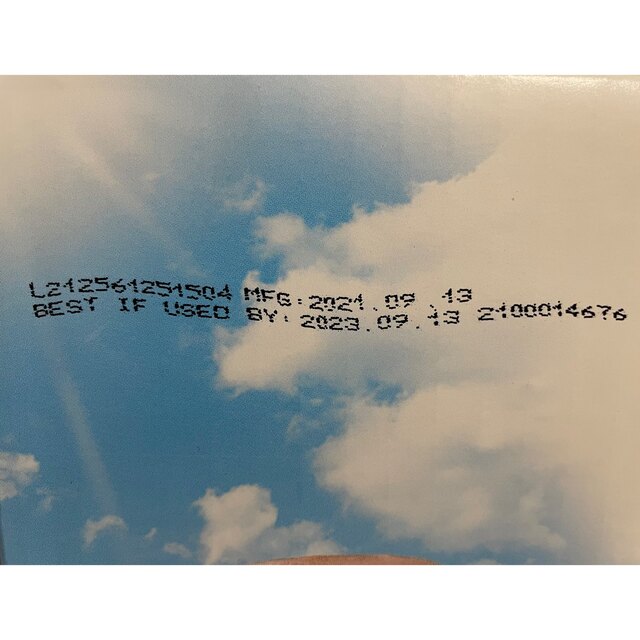 L212561251504 MFG:2021.09.13
BEST IF USED BY:2023.09.13 2100014676